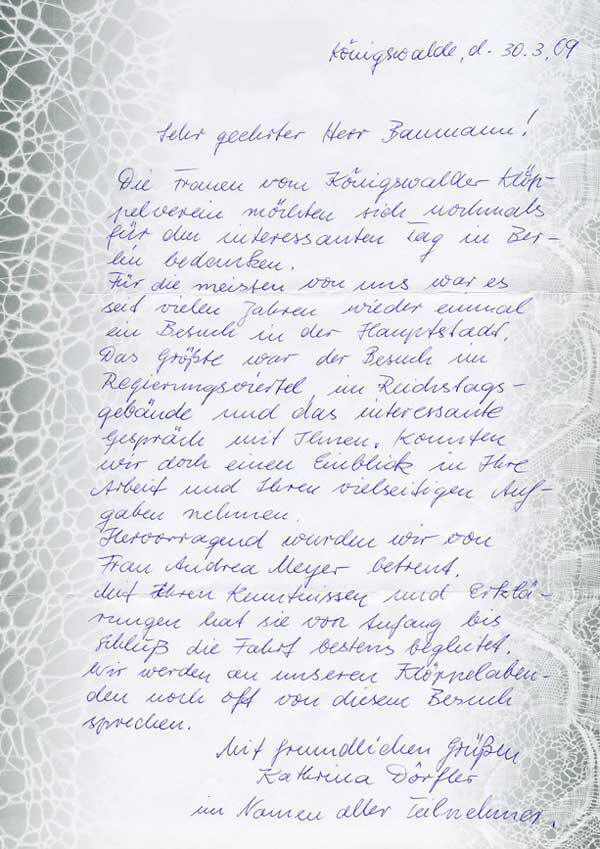 Königswalde, d. 30.3.09
Sehr geehrter Herr Baumann!
Die Frauen vom Königswalder Klöp-
pelverein möchten sich nochmals
für den interessanten Tag in Ber-
lin bedanken.
Für die meisten von uns war es
seit vielen Jahren wieder einmal
ein Besuch in der Hauptstadt.
Das Größte war der Besuch im
Regierungsviertel, im Reichstags-
gebäude und das interessante
Gespräch mit Ihnen. Konnten
wir doch einen Einblick in Ihre
Arbeit und Ihren vielseitigen Auf-
gaben nehmen.
Hervorragend wurden wir von
Frau Andrea Meyer betreut.
Mit Ihren Kenntnissen und Erklä-
rungen hat sie von Anfang bis
Schluß die Fahrt bestens begleitet.
Wir werden an unseren Klöppelaben-
den noch oft von diesem Besuch
sprechen.
Mit freundlichen Grüßen
Kathrina Dörfler
im Namen aller Teilnehmer.